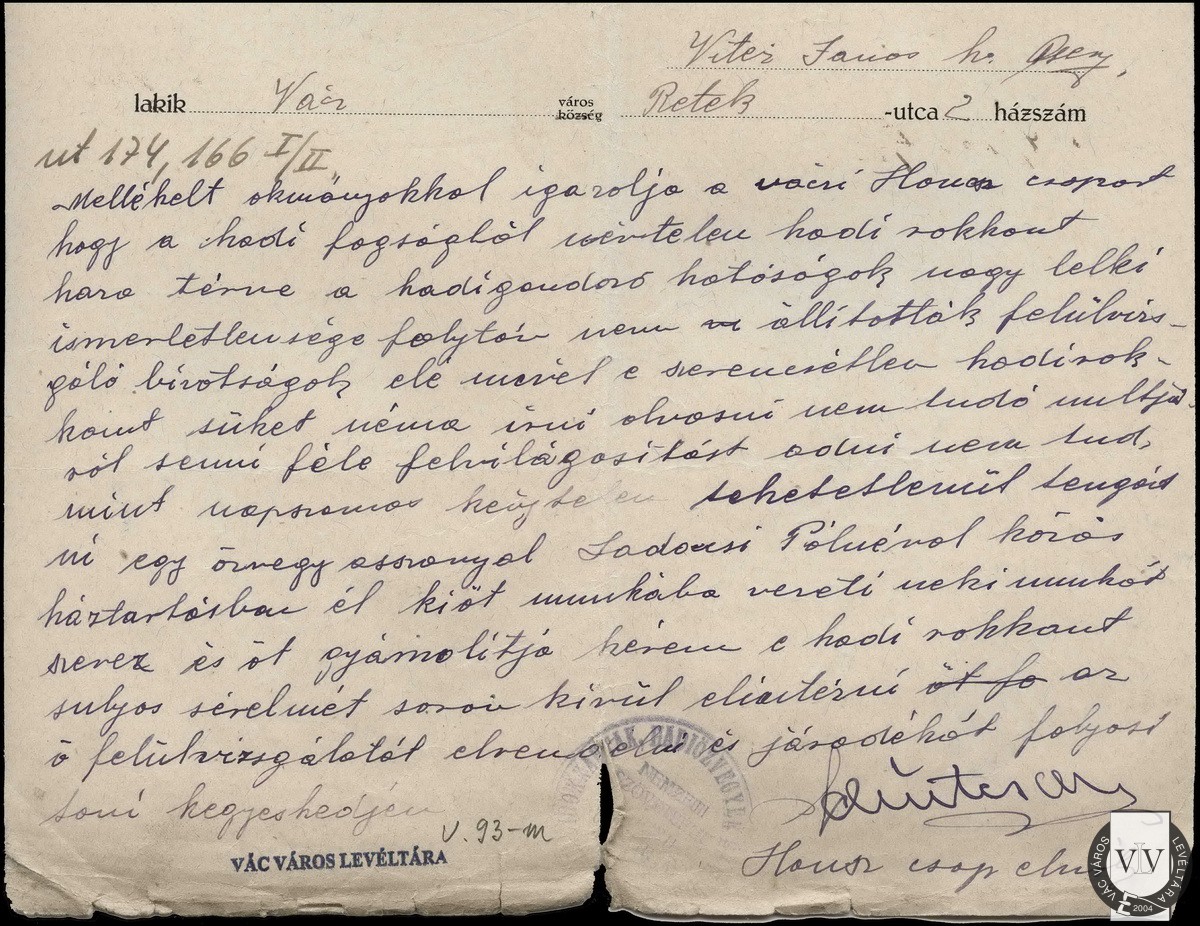 Vitéz János h.
lakik Vác város község Retek -utca 2 házszám
ut 174, 166 I/II
Mellékelt okmányokkal igazolja a váczi Honsz csoport
hogy a hadi fogságból vértelen hadi rokkant
haza térve a hadigondozó hatóságok nagy lelki
ismeretlensége folytán nem állították felülvizs-
gáló bizotságok elé mivel e szerencsétlen hadirok-
kant süket néma írni olvasni nem tudó multjá-
ról semi féle felvilágosítást adni nem tud,
mint napszamos kénytelen tehetetlenül tengőd
ni egy özvegy asszonyal Ladocsi Pálnéval közös
háztartásban él kiöt munkába vezeti neki munkát
szerez és öt gyámolítja kérem e hadi rokkant
sulyos sérelmét soron kívül elintézni öt fo az
ő felülvizsgálatát elrendelni és járadékát folyosi
tani kegyeskedjén
V. 93-m
VÁC VÁROS LEVÉLTÁRA
Honsz csop
VÁC VÁROS LEVÉLTÁRA
VLV
2004